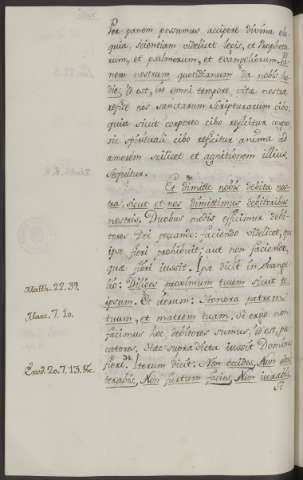 Per panem possumus accipere divina elo
quia, scientiam videlicet legis, et Propheta
rum, et psalmorum, et evangeliorum. Pa
nem nostrum quotidianum da nobis ho
die, id est, in omni tempore vitæ nostræ
refice nos sanctarum Scripturarum cibo,
quia sicut corporeo cibo reficitur corpus
sic spirituali cibo reficitur anima ad
amorem scilicet et agnitionem illius
Et dimitte nobis debita nos
tra sicut et nos dimittimus debitoribus
nostris. Duobus modis efficimur debi
tores Dei peccando: faciendo videlicet, quæ
ipse fieri prohibuit, aut non faciendo,
quæ fieri iussit. Ipse dicit in Evange
lio: Diliges proximum tuum sicut te
Matth. 22. 39.
ipsum. Et iterum: Honora patrem
Marc. 7. 10.
tuum, et matrem tuam. Si ergo non
facimus hæc debitores sumus, id est, pec
catores. Hæc supra dicta iussit Dominus
fieri. Iterum dicit: Non occides, Non
Exod. 20. 7. 13. &c.
Non furtum facies, Non